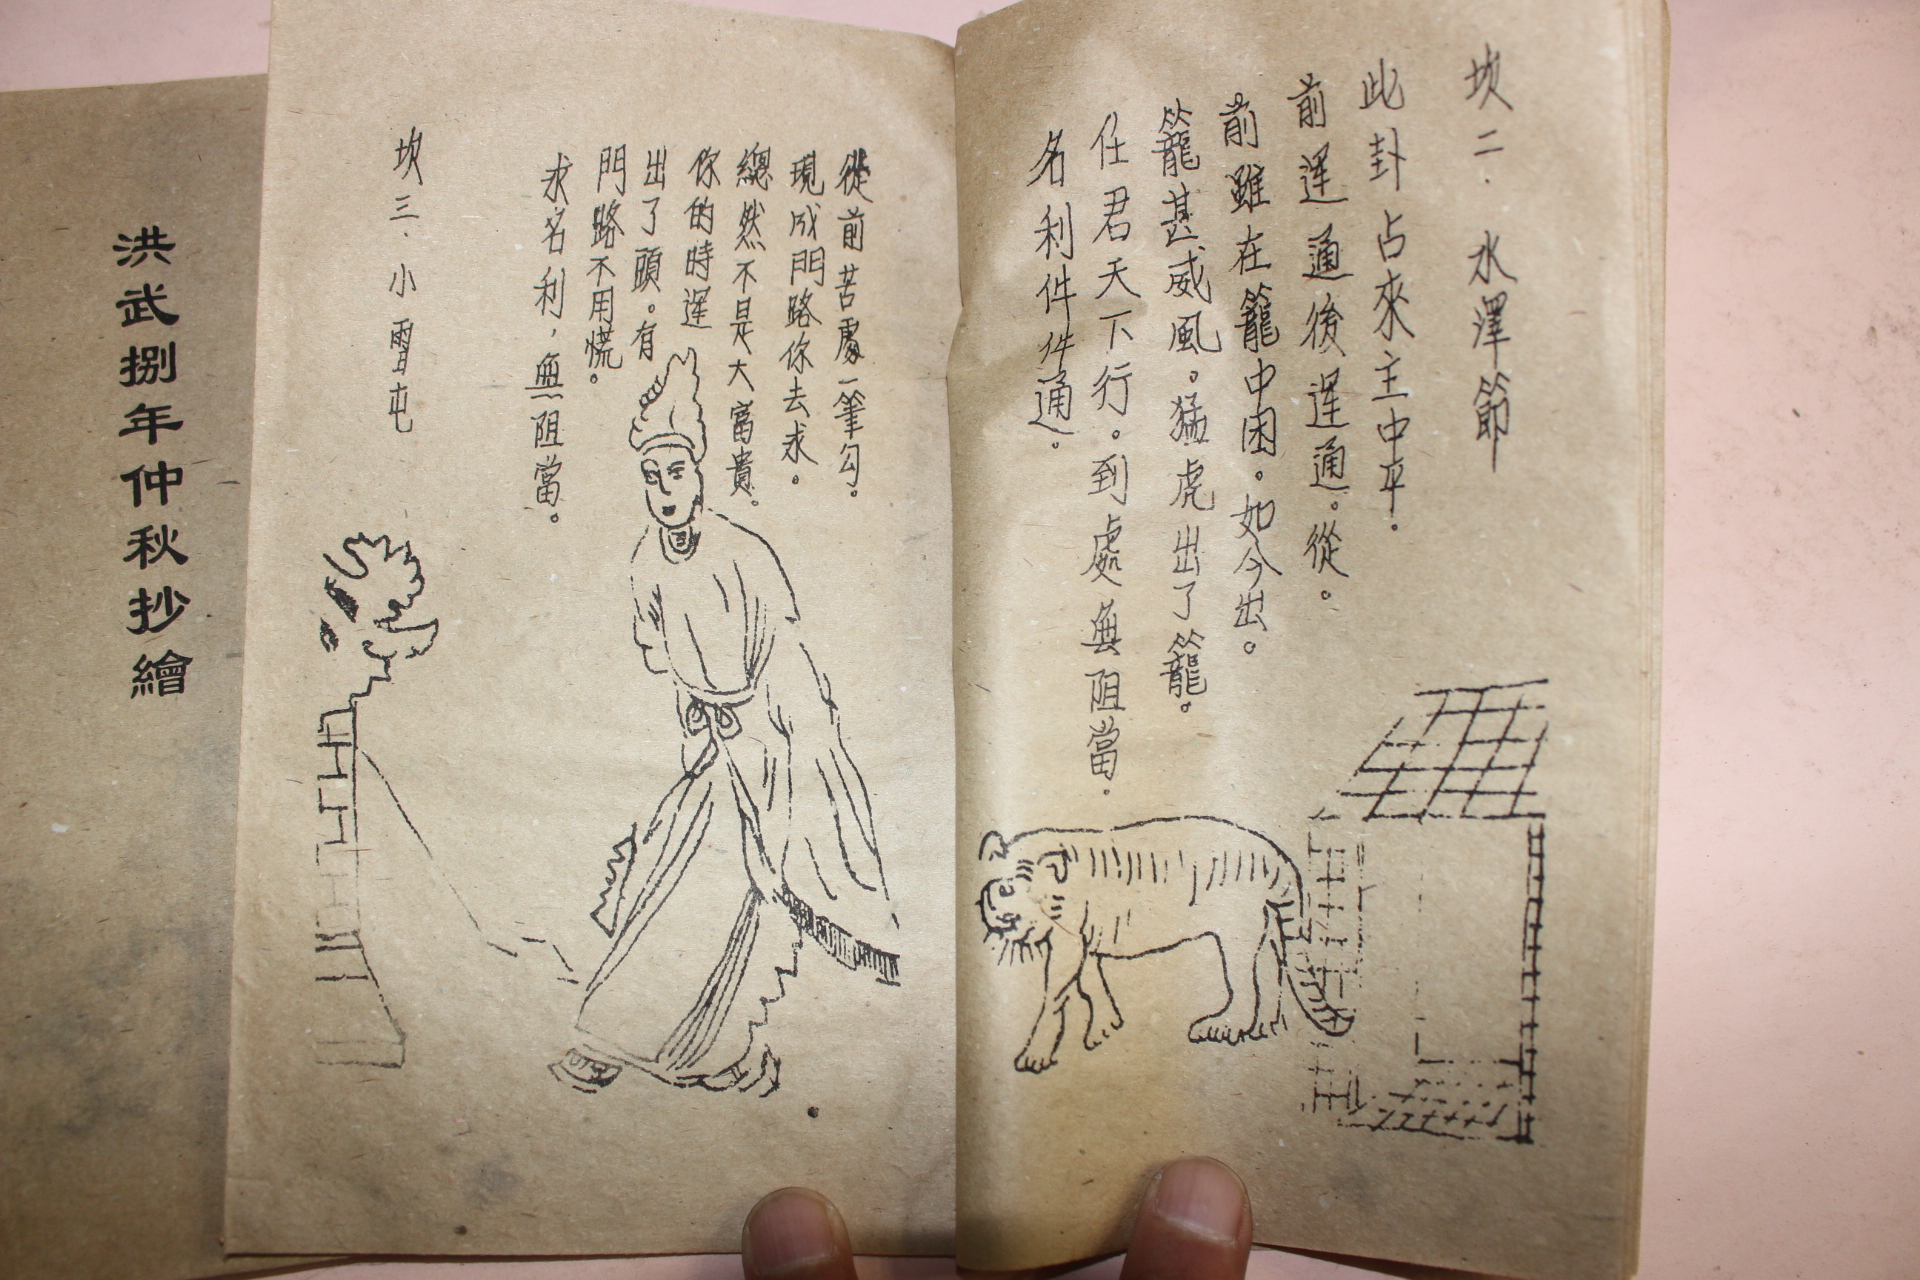 坎二．水澤節
此卦占來主中平．
前運通後運通。從。
前雖在籠中困。如今出。
籠甚威風。猛虎出了籠。
任君天下行。到處無阻當．
名利件件通．
從前苦處一筆勾。
現成門路你去求．
總然不是大富貴．
你的時運
出了頭。有
門路不用慌。
求名利，無阻當。
坎三．小雷屯
洪武捌年仲秋抄繪